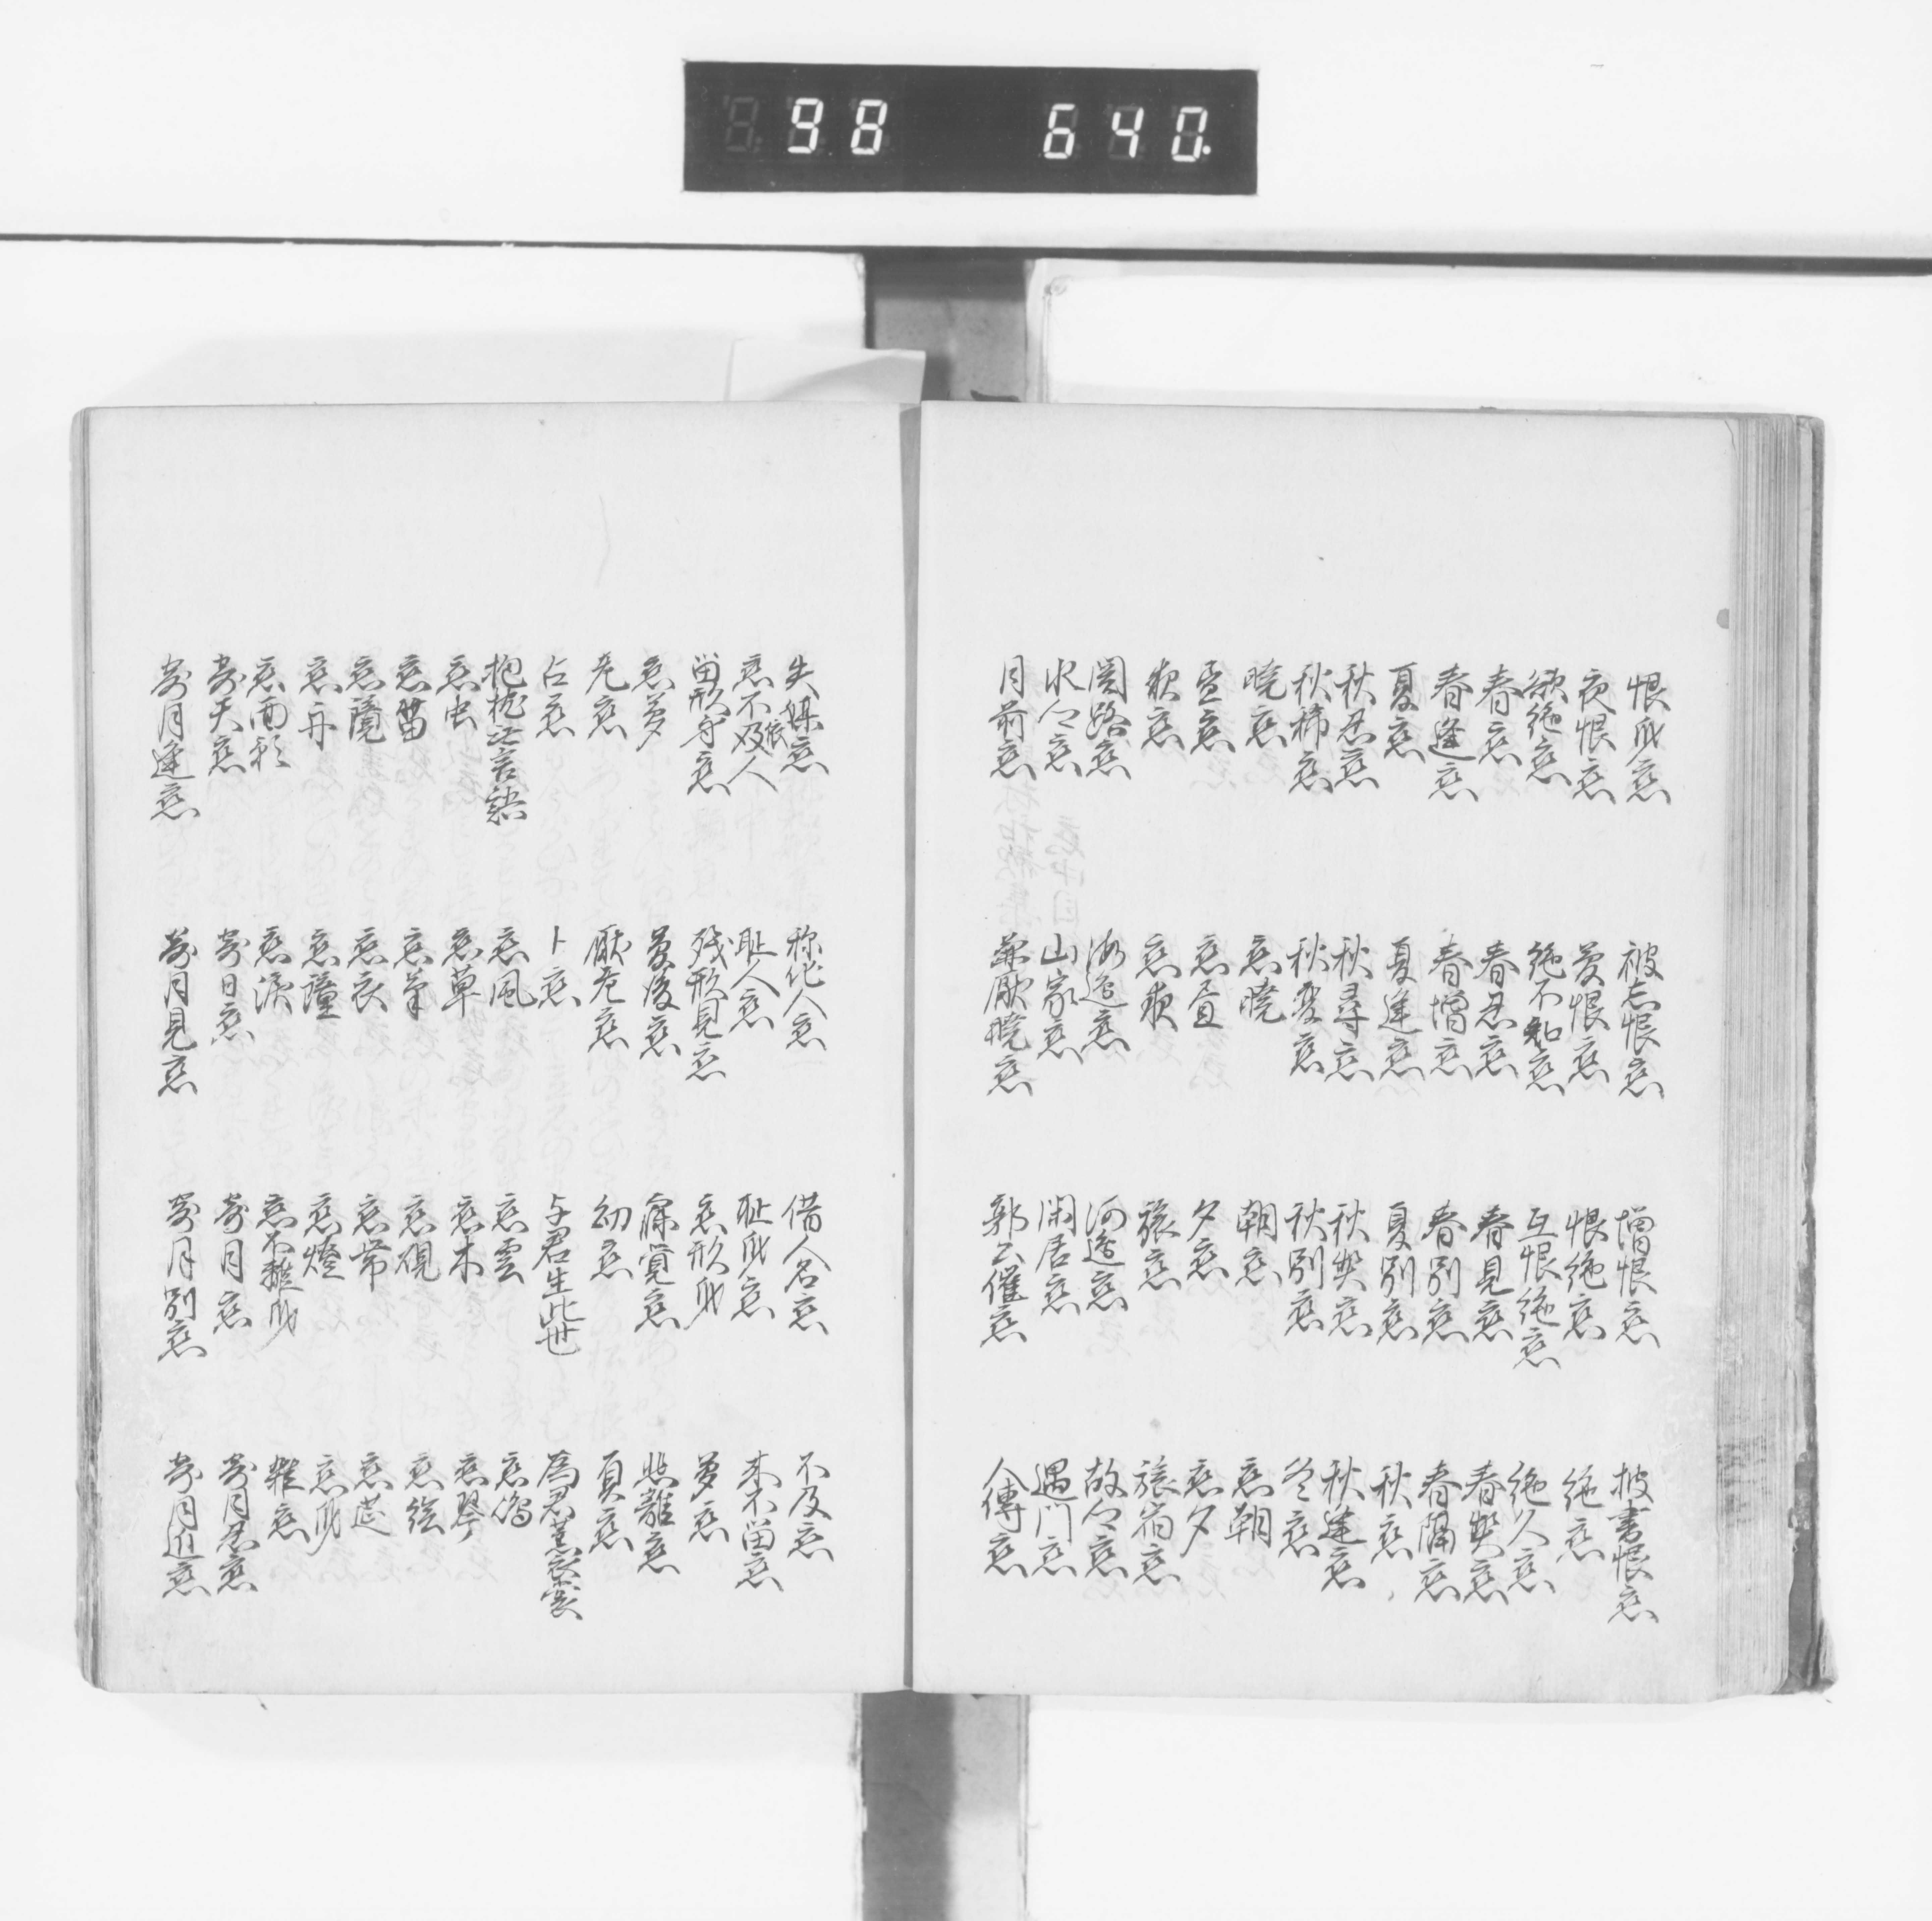 98 640.
恨身恋 被忘恨恋 増恨恋 披書恨恋
夜恨恋 夢恨恋 恨絶恋 絶恋
欲絶恋 絶不知恋 互恨絶恋 絶久恋
春恋 春忍恋 春見恋 春契恋
春逢恋 春増恋 春別恋 春隔恋
夏恋 夏逢恋 夏別恋 秋恋
秋忍恋 秋尋恋 秋契恋 秋逢恋
秋稀恋 秋変恋 秋別恋 冬恋
暁恋 恋暁 朝恋 恋朝
昼恋 恋昼 夕恋 恋夕
夜恋 恋夜 旅恋 旅宿恋
関路恋 海辺恋 河辺恋 故郷恋
水郷恋 山家恋 閑居恋 過門恋
月前恋 兼厭暁恋 郭公催恋 人傳恋
失媒恋 称他人恋 借人名恋 不及恋
恋不依人 恥人恋 恥身恋 来不留恋
留形守恋 残形見恋 恋形身 夢恋
恋夢 夢後恋 寐覚恋 悲離恋
老恋 厭老恋 幼恋 貞恋
占恋 卜恋 与君生此世 為君薫衣裳
抱枕無言語 恋風 恋雲 恋鳥
恋虫 恋草 恋木 恋琴
恋笛 恋筆 恋硯 恋絵
恋鏡 恋衣 恋帯 恋莚
恋舟 恋鐘 恋燈 恋身
恋面影 恋涙 恋不離身 雑恋
寄天恋 寄日恋 寄月恋 寄月忍恋
寄月逢恋 寄月見恋 寄月別恋 寄月近恋